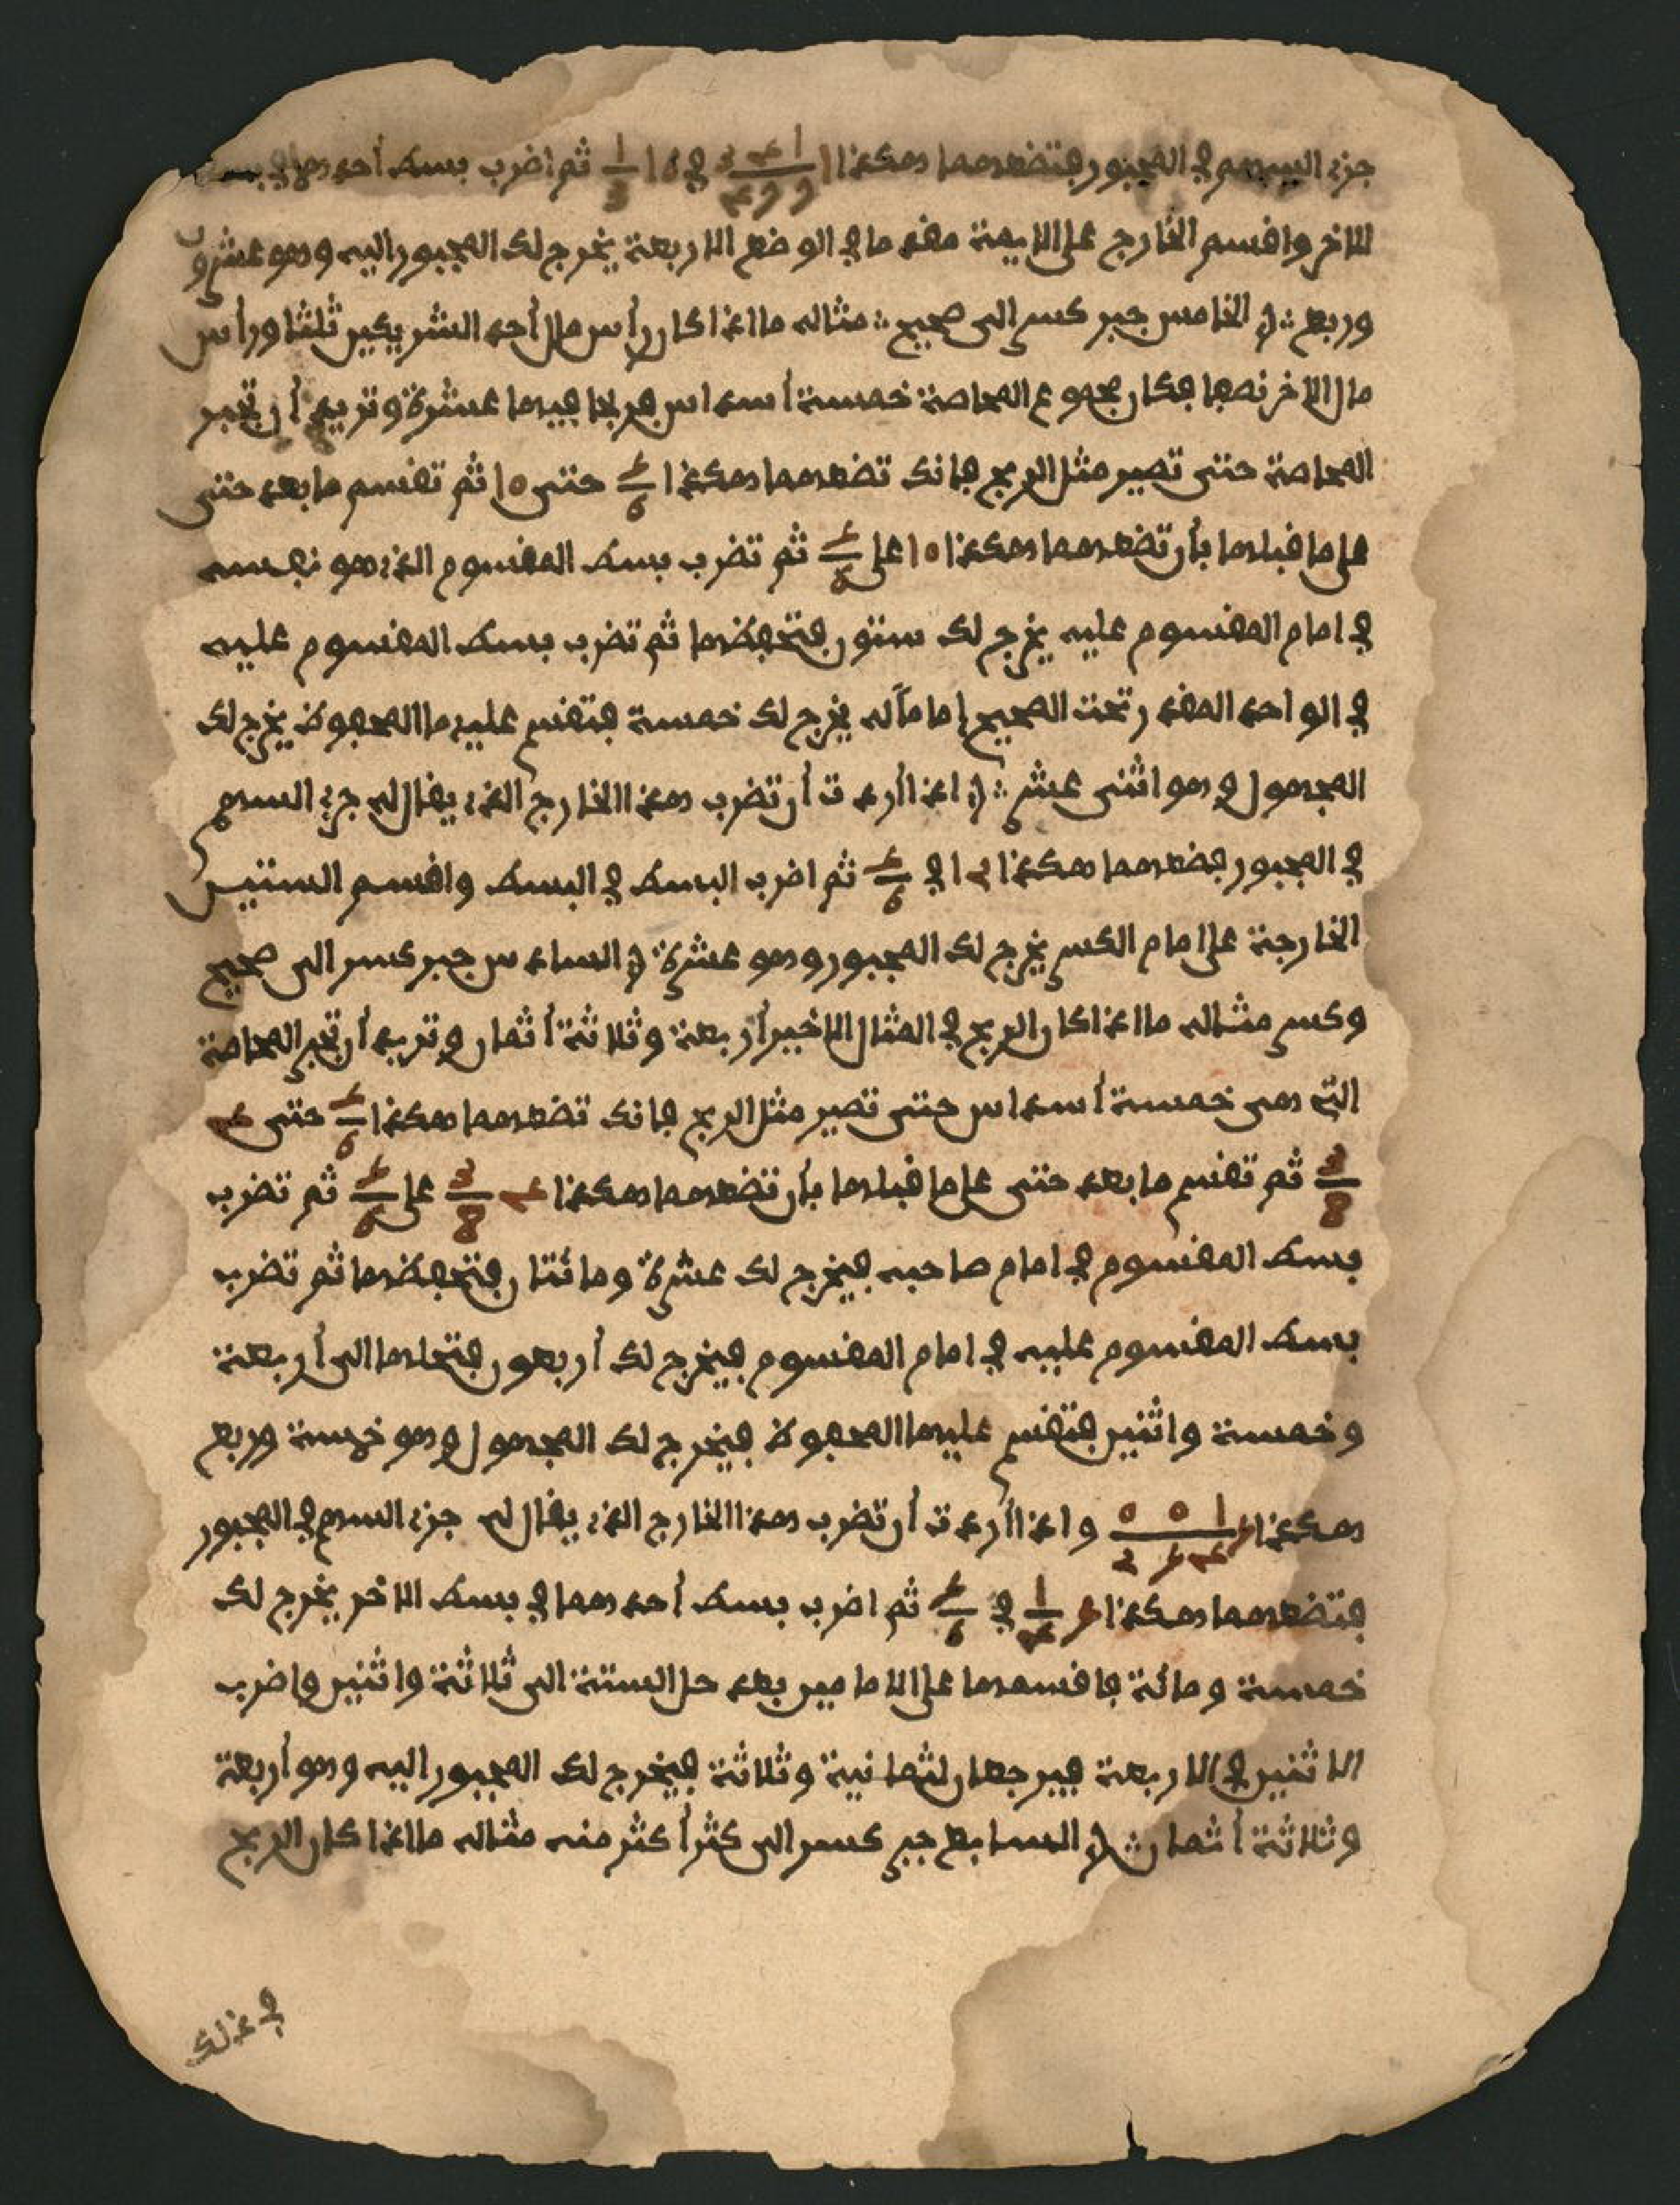 جزء السهم في المجبور فتضعهما هكذا في ثم اضرب بسط أحدهما في بسط
الاخر واقسم الخارج على الايمة بعد ما في الوضع الاربعة يخرج لك المجبور اليه وهو عشرون
وربع ∴ الخامس جبر كسر الى صحيح ∴ مثاله ما اذا كان رأس مال أحد الشريكين ثلثا ورأس
مال الاخر نصفا فكان مجموع المحاصة خمسة أسداس فربحا فيهما عشرة وتريد أن تجبر
المحاصة حتى تصير مثل الربح فانك تضعهما هكذا 5/6 حتى 10 ثم تقسم ما بعد حتى
على ما قبلها بأن تضعهما هكذا 10 على 5/6 ثم تضرب بسط المقسوم الذي هو نفسه
في امام المقسوم عليه يخرج لك ستون فتحفظها ثم تضرب بسط المقسوم عليه
في الواحد المقدر تحت الصحيح إماما له يخرج لك خمسة فتقسم عليها المحفوظ يخرج لك
المجهول وهو اثنى عشر ∴ اذا أردت أن تضرب هذا الخارج الذي يقال له جزء السهم
في المجبور فضعهما هكذا 12 في 5/6 ثم اضرب البسط في البسط واقسم الستين
الخارجة على امام الكسر يخرج لك المجبور وهو عشرة السادس جبر كسر الى صحيح
وكسر مثاله ما اذا كان الربح في المثال الاخير أربعة وثلاثة أثمان وتريد أن تجبر المحاصة
التي هي خمسة أسداس حتى تصير مثل الربح فانك تضعهما هكذا 5/6 حتى 4
3/8 ثم تقسم ما بعد حتى على ما قبلها بأن تضعهما هكذا 4 3/8 على 5/6 ثم تضرب
بسط المقسوم في امام صاحبه فيخرج لك عشرة ومائتان فتحفظها ثم تضرب
بسط المقسوم عليه في امام المقسوم فيخرج لك أربعون فتحلها الى أربعة
وخمسة واثنين فتقسم عليها المحفوظ فيخرج لك المجهول وهو خمسة وربع
هكذا واذا أردت أن تضرب هذا الخارج الذي يقال له جزء السهم في المجبور
فتضعهما هكذا 5 1/4 في 5/6 ثم اضرب بسط أحدهما في بسط الاخر يخرج لك
خمسة ومائة فاقسمها على الامامين بعد حل الستة الى ثلاثة واثنين واضرب
الاثنين في الاربعة فيرجعان لثمانية وثلاثة فيخرج لك المجبور اليه وهو أربعة
وثلاثة أثمان ∴ السابع جبر كسر الى كثر أكثر منه مثاله ما اذا كان الربح
في ذلك